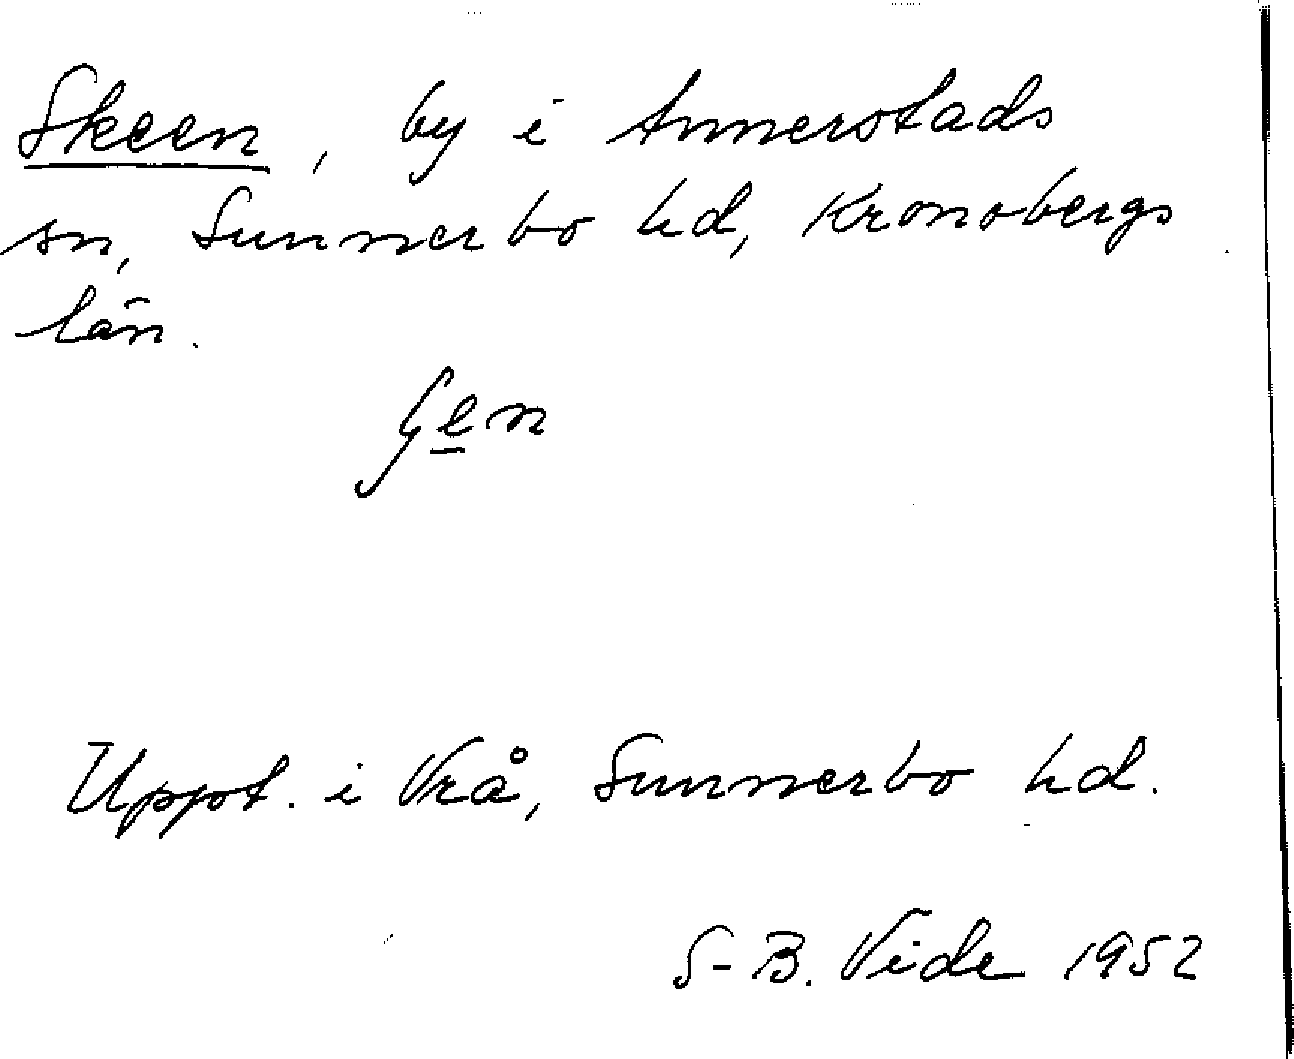 Skeen, by i Annerstads
sn, Sunnerbo hd, Kronobergs
län.
Uppt. i Vrå, Sunnerbo hd.
S-B. Vide 1952